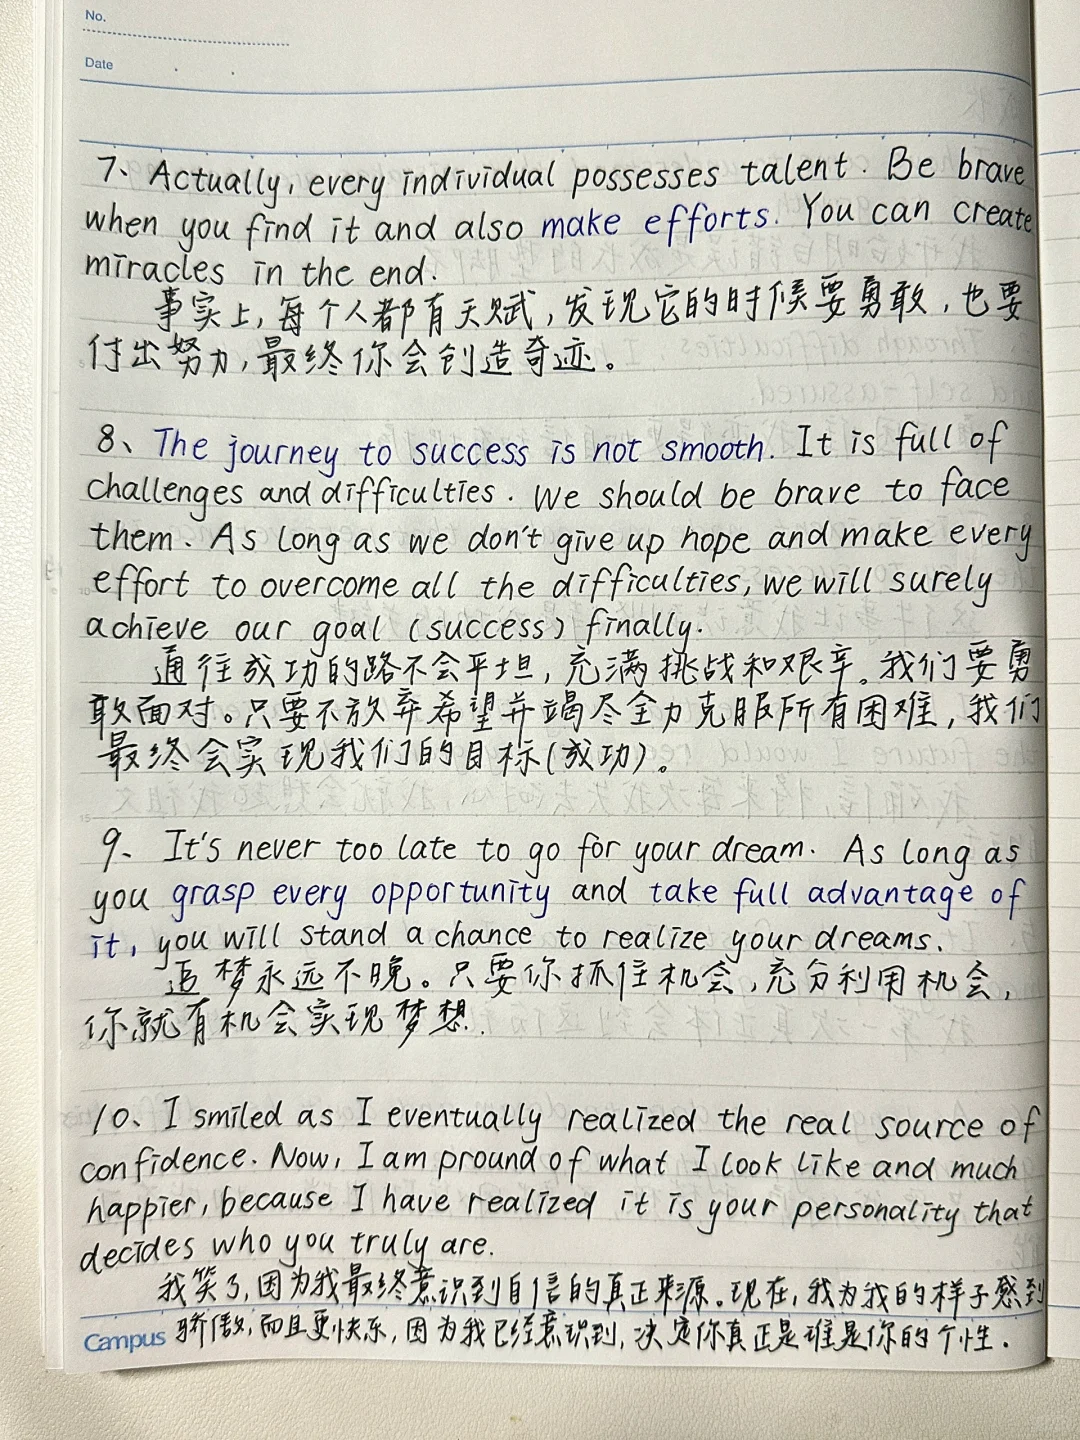 No.
Date
7、Actually, every individual possesses talent. Be brave
when you find it and also make efforts. You can create
miracles in the end.
事实上,每个人都有天赋,发现它的时候要勇敢,也要
付出努力,最终你会创造奇迹。
8、The journey to success is not smooth. It is full of
challenges and difficulties. We should be brave to face
them. As long as we don't give up hope and make every
effort to overcome all the difficulties, we will surely
achieve our goal (success) finally.
通往成功的路不会平坦,充满挑战和艰辛。我们要勇
敢面对。只要不放弃希望并竭尽全力克服所有困难,我们
最终会实现我们的目标(成功)。
9、It's never too late to go for your dream. As long as
you grasp every opportunity and take full advantage of
it, you will stand a chance to realize your dreams.
追梦永远不晚。只要你抓住机会,充分利用机会,
你就有机会实现梦想.
10、I smiled as I eventually realized the real source of
confidence. Now, I am pround of what I look like and much
happier, because I have realized it is your personality that
decides who you truly are.
我笑了,因为我最终意识到自信的真正来源。现在,我为我的样子感到
骄傲,而且更快乐,因为我已经意识到,决定你真正是谁是你的个性.
Campus